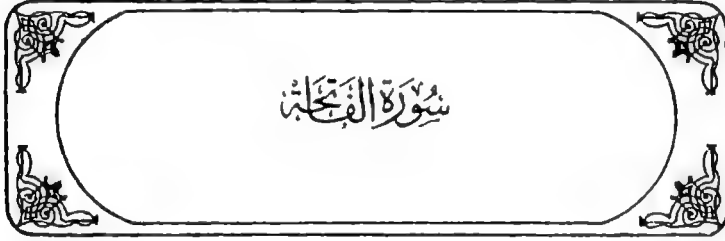 سُورَة الفَاتِحَة